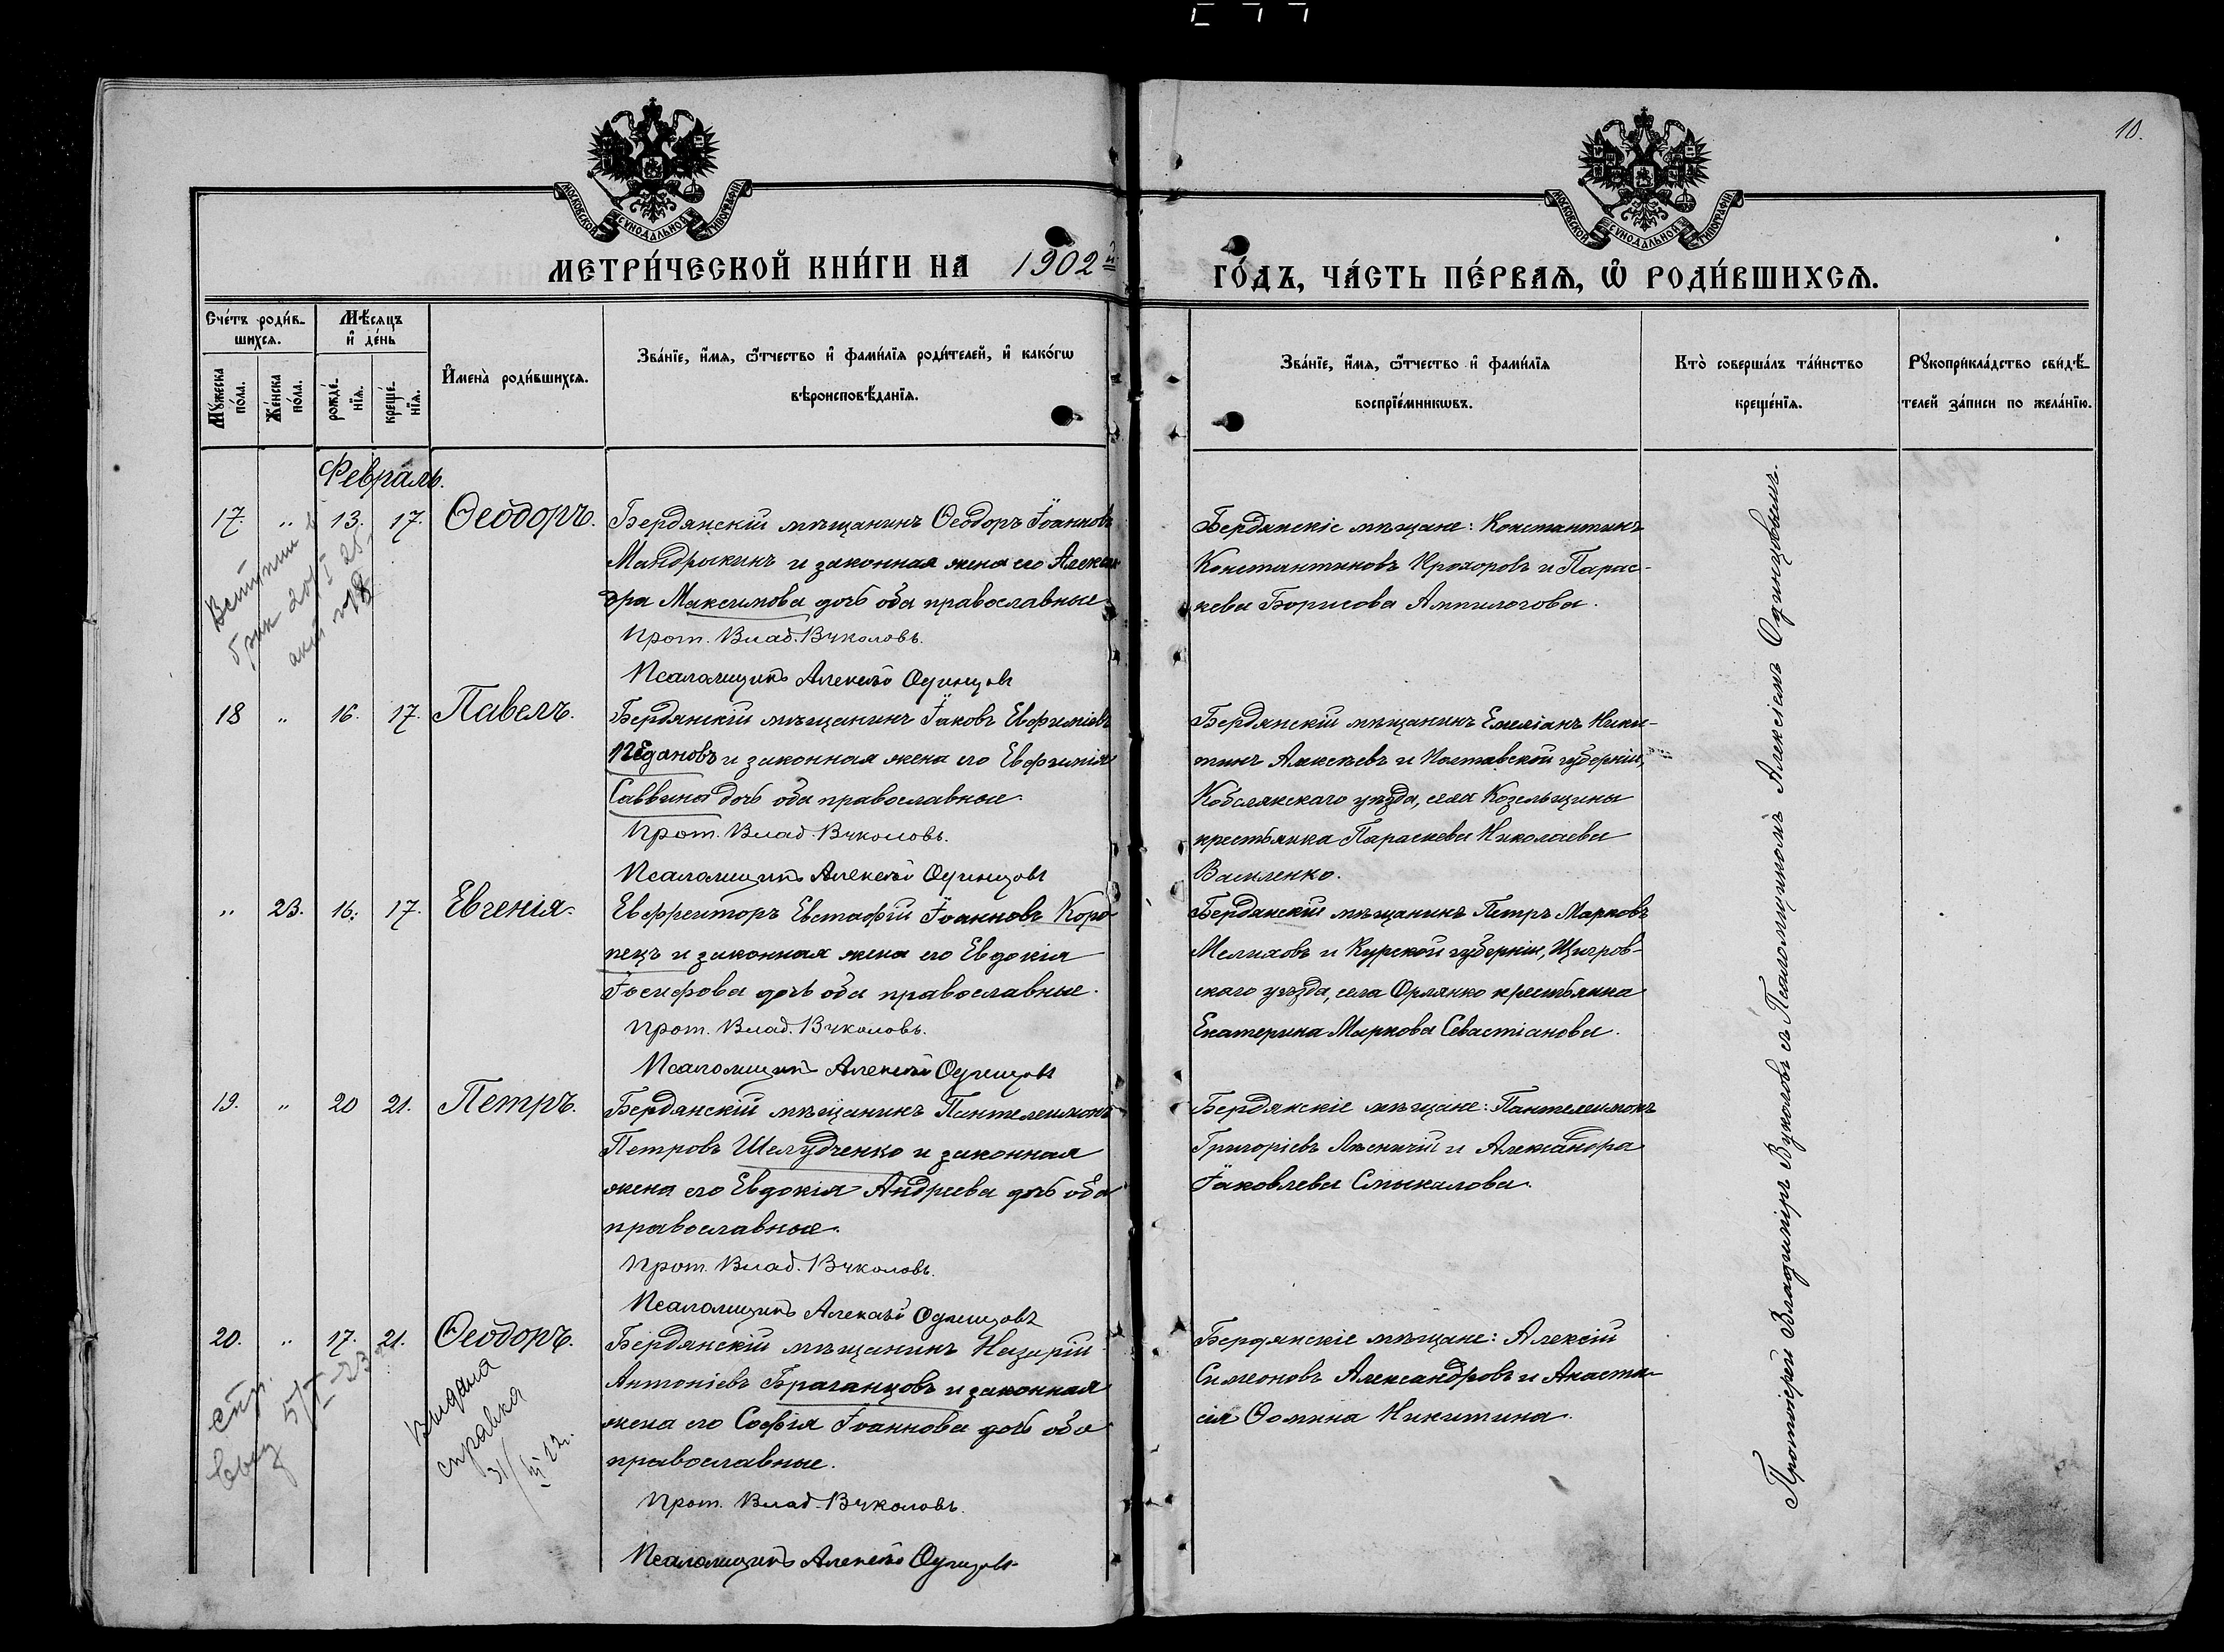 10.
МОСКОВСКОЙ СУНОДАЛЬНОЙ ТИПОГРАФІИ
МОСКОВСКОЙ СУНОДАЛЬНОЙ ТИПОГРАФІИ
МЕТРИ́ЧЕСКОЙ КНИ́ГИ НА 1902й
ГО́ДЪ, ЧА́СТЬ ПЕ́РВАѦ, Ѡ҆ РОДИ́ВШИХСѦ.
Сче́тъ роди́в-
шихсѧ.
Мꙋ́жеска
по́ла.
Же́нска
по́ла.
Мѣ́сѧцъ
и҆ де́нь
рожде́-
нїѧ.
креще́-
нїѧ.
И҆мена̀ роди́вшихсѧ.
Зва́нїе, и҆́мѧ, ѻ҆́тчество и҆ фами́лїѧ роди́телей, и҆ како́гѡ
вѣроисповѣ́данїѧ.
Зва́нїе, и҆́мѧ, ѻ҆́тчество и҆ фами́лїѧ
воспрїе́мникѡвъ.
Кто̀ соверша́лъ та́инство
креще́нїѧ.
Рꙋкоприкла́дство свидѣ́-
телей за́писи по жела́нїю.
Февраль.
17. „ 13. 17. Ѳеодоръ.
Бердянскій мѣщанинъ Ѳеодоръ Іоанновъ
Мандрыкинъ и законная жена его Алексан
дра Максимова дочь оба православные
Прот. Влад. Вуколовъ.
Псаломщикъ Алексѣй Одинцовъ
Бердянскіе мѣщане: Константинъ
Константиновъ Прохоровъ и Парас-
кева Борисова Ампилогова.
Вступил в
брак
18 „ 16. 17. Павелъ.
Бердянскій мѣщанинъ Іаковъ Евфиміевъ
и законная жена его Евфимія
Саввина дочь оба православные.
Прот. Влад. Вуколовъ.
Псаломщикъ Алексѣй Одинцовъ
Бердянскій мѣщанинъ Емеліанъ Ники-
тинъ Алексѣевъ и Полтавской губерніи,
Кобелякскаго уѣзда, села Козельщины
крестьянка Параскева Николаева
Василенко.
„ 23. 16. 17. Евгенія.
Ефрейторъ Евстафій Іоанновъ Коро-
пецъ и законная жена его Евдокія
Іосифова дочь оба православные.
Прот. Влад. Вуколовъ.
Псаломщикъ Алексѣй Одинцовъ
Бердянскій мѣщанинъ Петръ Марковъ
Мелиховъ и Курской губерніи, Щигров-
скаго уѣзда, села Орлянко крестьянка
Екатерина Маркова Севастіанова.
19. „ 20 21. Петръ.
Бердянскій мѣщанинъ Пантелеимонъ
Петровъ Шелудченко и законная
жена его Евдокія Андреева дочь оба
православные.
Прот. Влад. Вуколовъ.
Псаломщикъ Алексѣй Одинцовъ
Бердянскіе мѣщане: Пантелеимонъ
Григоріевъ Лѣсничій и Александра
Іаковлева Смыкалова.
20. „ 17. 21. Ѳеодоръ.
Бердянскій мѣщанинъ Назарій
Антоніевъ Браганцовъ и законная
жена его Софія Іоаннова дочь оба
православные.
Прот. Влад. Вуколовъ.
Псаломщикъ Алексѣй Одинцовъ
Бердянскіе мѣщане: Алексій
Симеоновъ Александровъ и Анаста-
сія Ѳомина Никитина.
Выдана
справка
Протоіерей Владиміръ Вуколовъ съ Псаломщикомъ Алексіемъ Одинцовымъ.